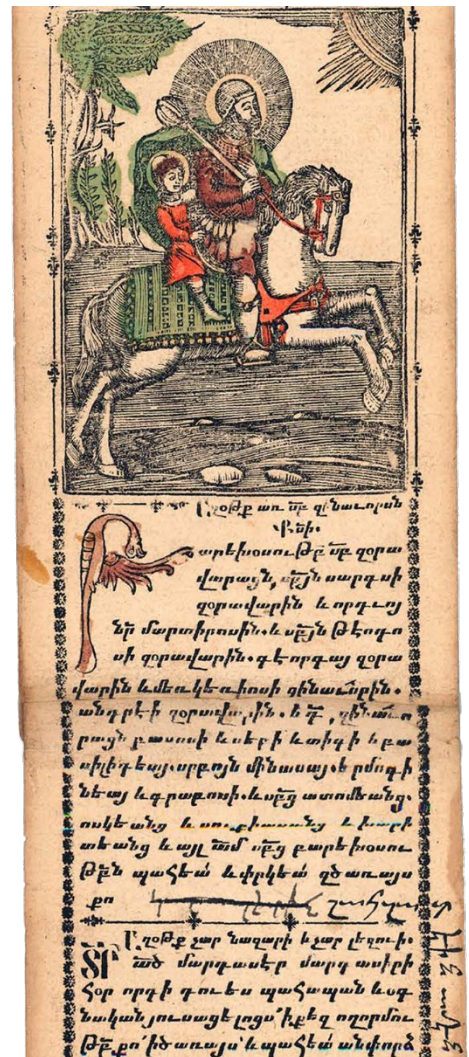 Աղօթք առ սբ զինաւորսն
Քնի։
Բարեխօսութբ սբ զօրա
վարացն, սբյն սարգսի
զօրավարին և որդւոյ
նր մարտիրոսին. և սբյն թէոդո
սի զօրավարին. գէորգայ զօրա
վարին և մեռկէռիոսի զինաւորին.
անդրէի զօրավարին. և
րացն
սիլիդեայ. սրբոյն մինասայ. երմոգի
նեայ և գրաբոսի. և սբց ատոմեանց.
ոսկեանց և սուքիասանց և խարի
տեանց և այլ ամ սբց բարեխօսու
թբն պահեա և փրկեա զծառայս
քո
Աղօթք չար նազարի և չար լեզուի։
ՏՐ ած մարդասէր մարդ ասիրի
հօր որդի դու ես պահապան և օգ
նական յուսացելոցս ՛ի քեզ ողորմու
թբ քո ՛ի ծառայս և պահեա անփորձ